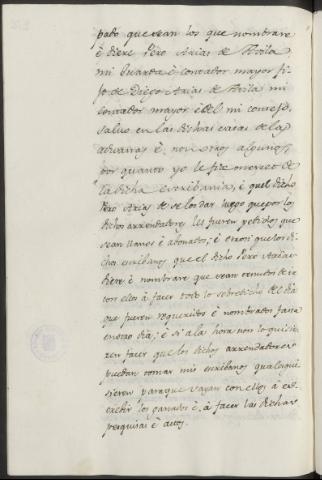 pado que sean los que nombrare
è diere Pero Arias de Avila
mi Guarda è contador mayor fi-
jo de Diego Arias de Avila mi
contador mayor è del mi consejo,
salvo en las dichas casas de las
aduanas è, non otros algunos,
por quanto yo le fize merced de
la dicha escribania, è quel dicho
Pero Arias de se los dar luego que por los
dichos arrendadores les fueren pedidos que
sean llanos è abonados; è otrosi que los di-
chos escribanos que el dicho Pero Arias
diere è nombrare que sean tenudos de ir
con ellos à facer todo lo sobredicho del dia
que fueren requeridos è nombrados fasta
en otro dia; è si à la hora non lo quisie-
ren facer que los dichos arrendadores
puedan tomar mis escribanos qualesqui-
sieren para que vayan con ellos à es-
crebir los ganados è, à facer las dichas
pesquisas è autos.